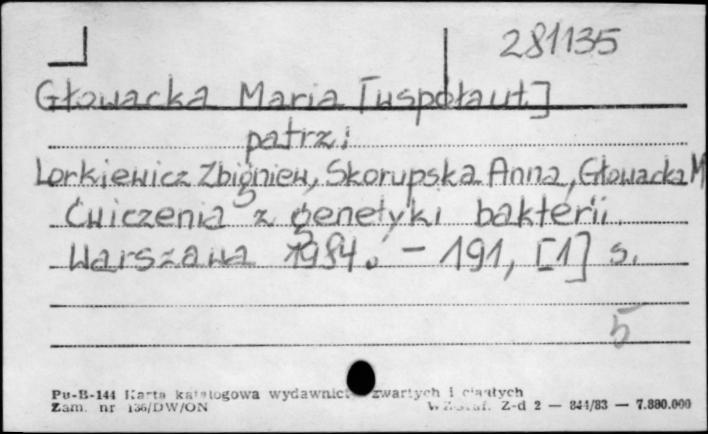 281135
Głowacka Maria [współaut]
patrz:
Lorkiewicz Zbigniew, Skorupska Anna, Głowacka M
Ćwiczenia z genetyki bakterii.
Warszawa 1984. - 191, [1] s.
5
Pu-B-144 Karta katalogowa wydawnictw zwartych i ciągłych
Zam. nr 136/DW/ON Z-d 2 — 844/83 — 7.880.000